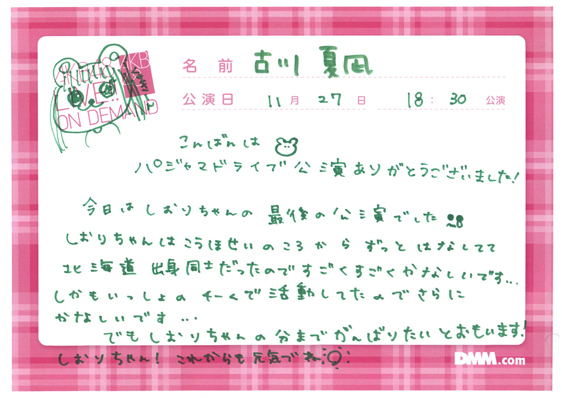 AKB
LIVE!!
ON DEMAND
名前 古川 夏凪
公演日 11月 27日 18:30 公演
こんばんは
パジャマドライブ公演ありがとうございました!
今日はしおりちゃんの最後の公演でした
しおりちゃんはこうほせいのころからずっとはなしてて
北海道出身同士だったのですごくすごくかなしいです...
しかもいっしょのチームで活動してたのでさらに
かなしいです...
でもしおりちゃんの分までがんばりたいとおもいます!
しおりちゃん! これからも元気でね
DMM.com